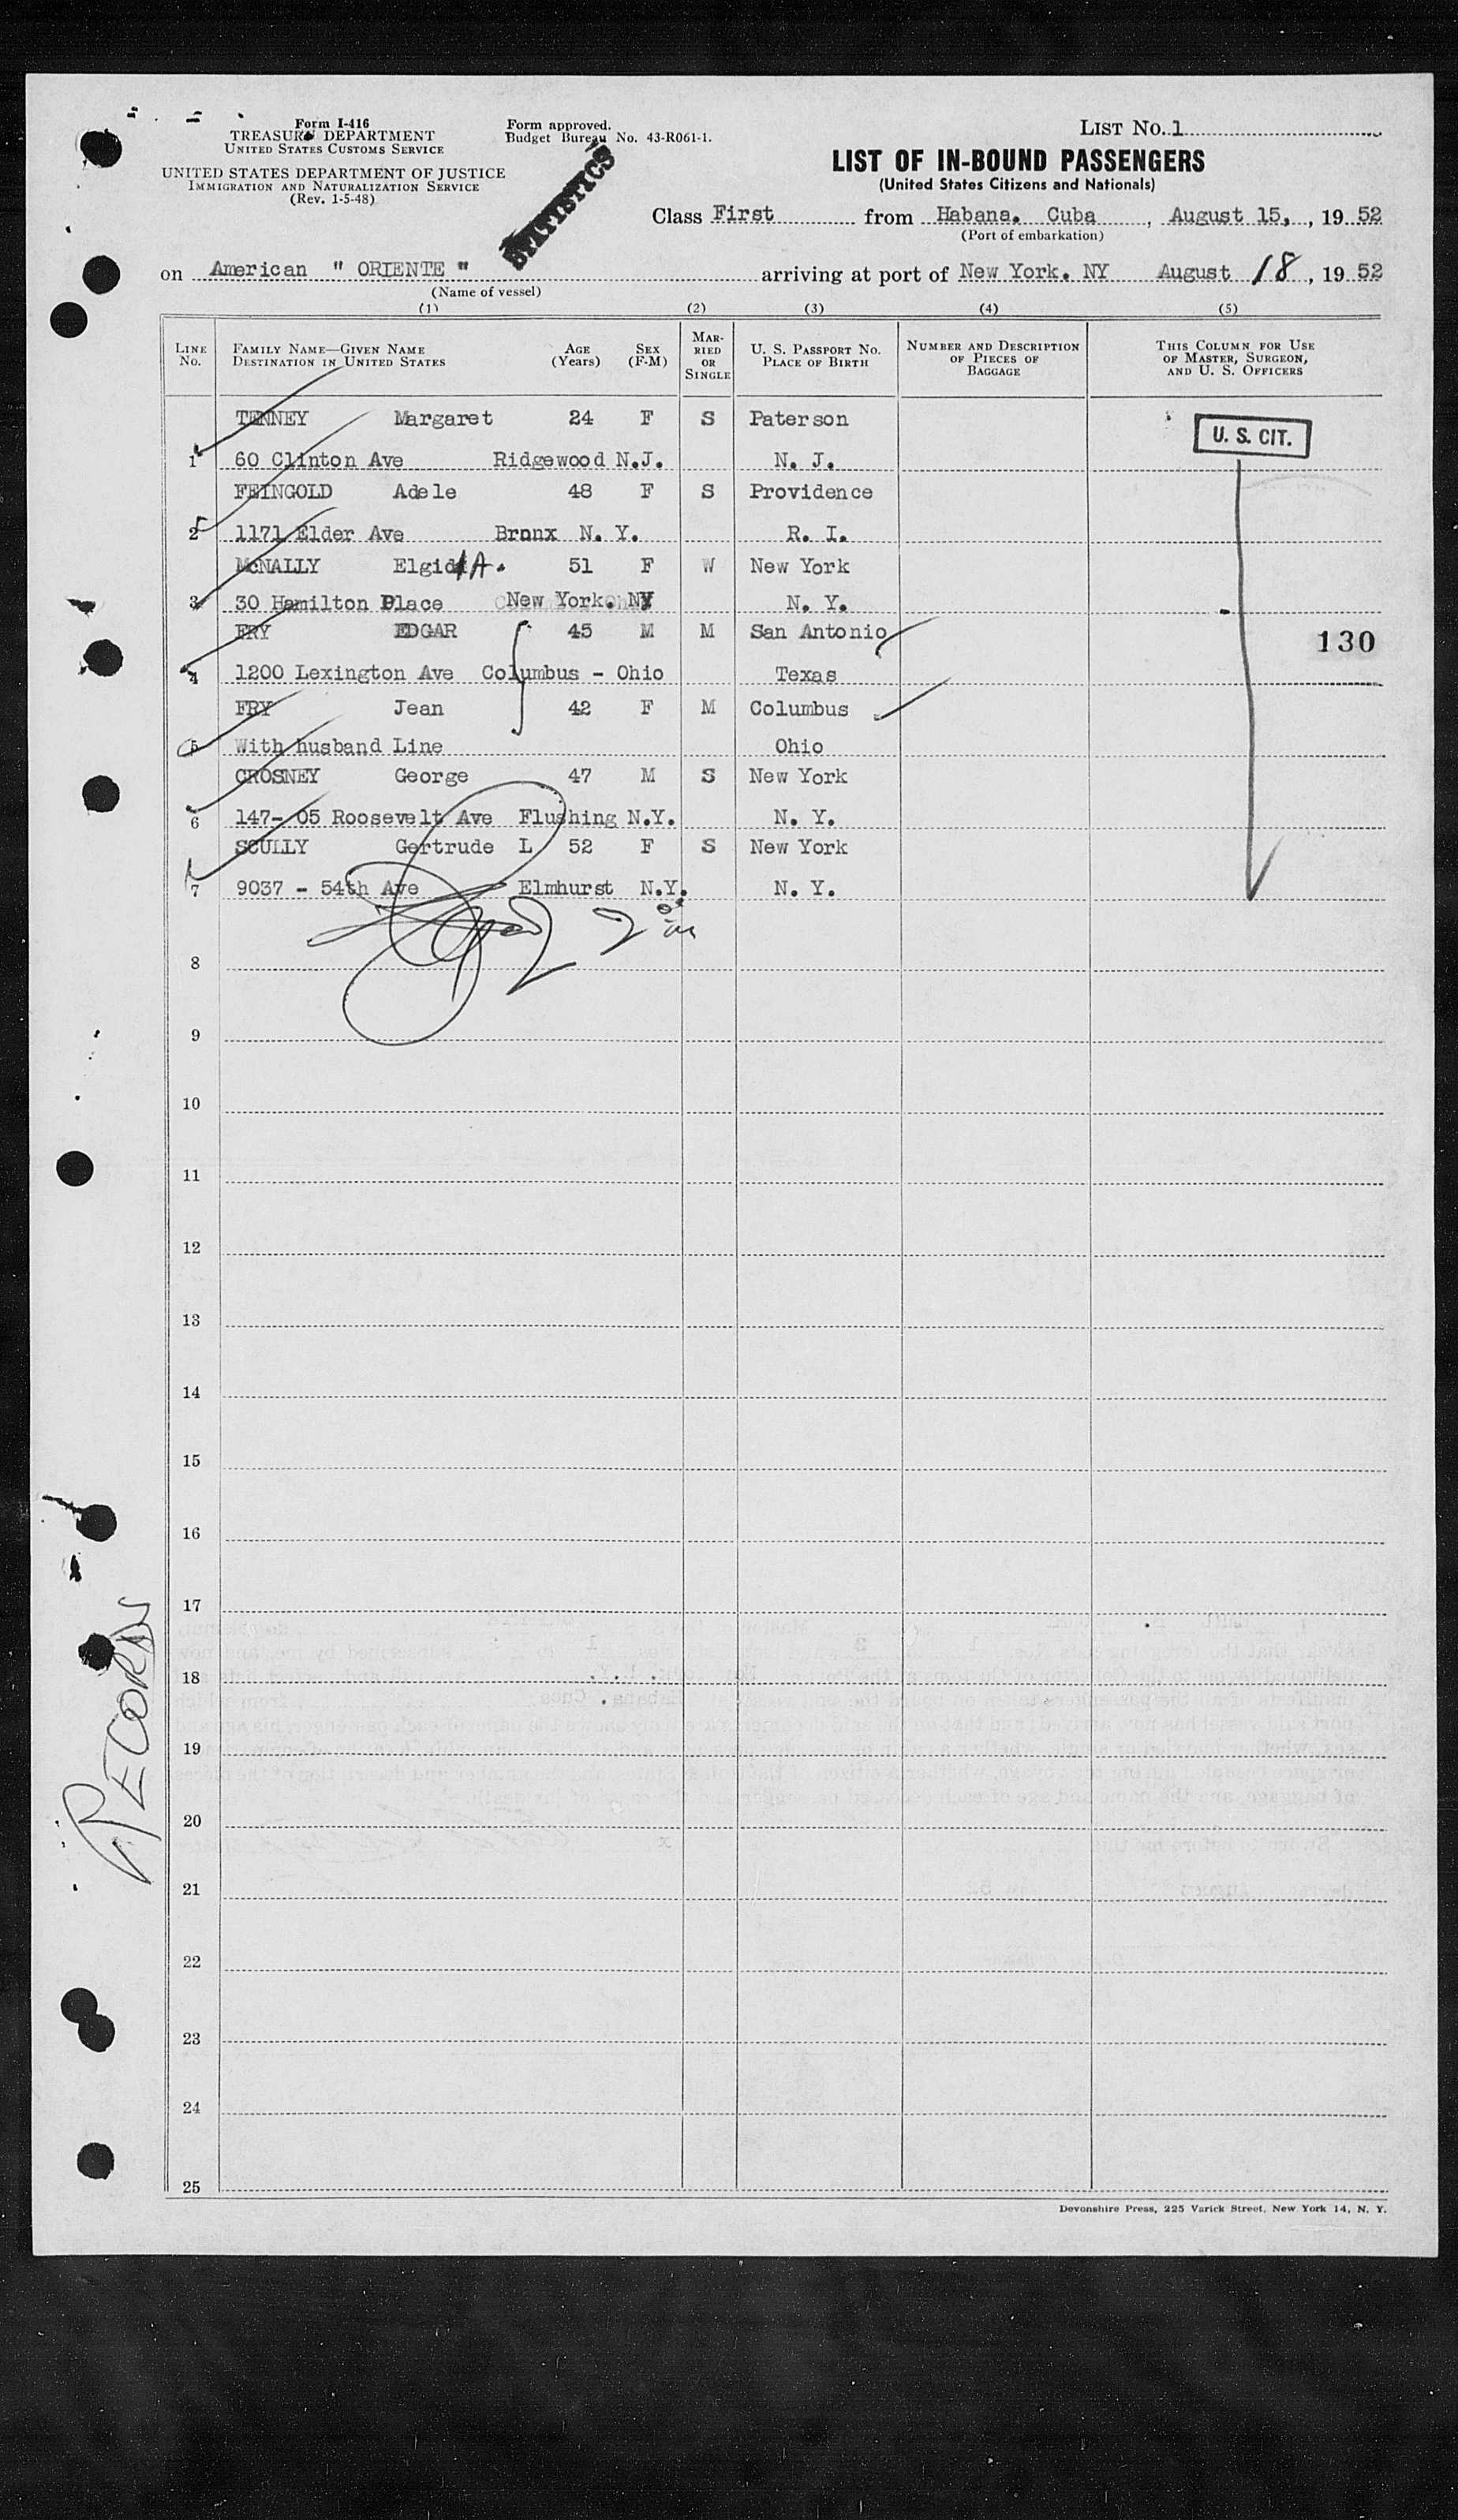 Form I-416
TREASURY DEPARTMENT
UNITED STATES CUSTOMS SERVICE
UNITED STATES DEPARTMENT OF JUSTICE
IMMIGRATION AND NATURALIZATION SERVICE
(Rev. 1-5-48)
Form approved.
Budget Bureau No. 43-R061-1.
STATISTICS
LIST NO. 1
LIST OF IN-BOUND PASSENGERS
(United States Citizens and Nationals)
Class First from Habana. Cuba , August 15, , 19 52
(Port of embarkation)
on American " ORIENTE " arriving at port of New York. NY August 18 , 19 52
(Name of vessel)
(1) (2) (3) (4) (5)
LINE No. FAMILY NAME—GIVEN NAME DESTINATION IN UNITED STATES AGE (Years) SEX (F-M) MARRIED OR SINGLE U. S. PASSPORT NO. PLACE OF BIRTH NUMBER AND DESCRIPTION OF PIECES OF BAGGAGE THIS COLUMN FOR USE OF MASTER, SURGEON, AND U. S. OFFICERS
TENNEY Margaret 24 F S Paterson
U. S. CIT.
1 60 Clinton Ave Ridgewood N.J. N. J.
FEINGOLD Adele 48 F S Providence
2 1171 Elder Ave Bronx N. Y. R. I.
McNALLY Elgid1A. 51 F W New York
3 30 Hamilton Place New York. NY N. Y.
FRY EDGAR 45 M M San Antonio
130
4 1200 Lexington Ave Columbus - Ohio Texas
FRY Jean 42 F M Columbus
5 With husband Line Ohio
CROSNEY George 47 M S New York
6 147- 05 Roosevelt Ave Flushing N.Y. N. Y.
SCULLY Gertrude L 52 F S New York
7 9037 - 54th Ave Elmhurst N.Y. N. Y.
8
9
10
11
12
13
14
15
16
17
18
19
20
21
22
23
24
25
RECORDS
Devonshire Press, 225 Varick Street, New York 14, N. Y.